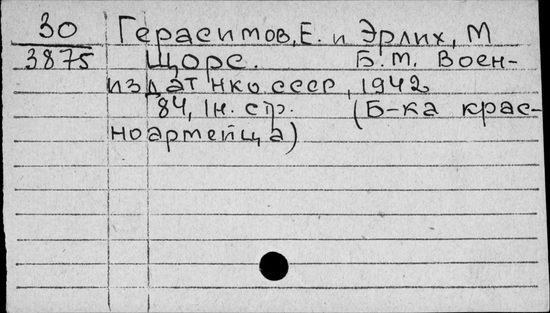 30 Герасимов, Е. и Эрлих, М
3875 Щорс. Б.м. Воен-
издат НКО СССР, 1942
84, 1н. стр. (Б-ка крас-
ноармейца)